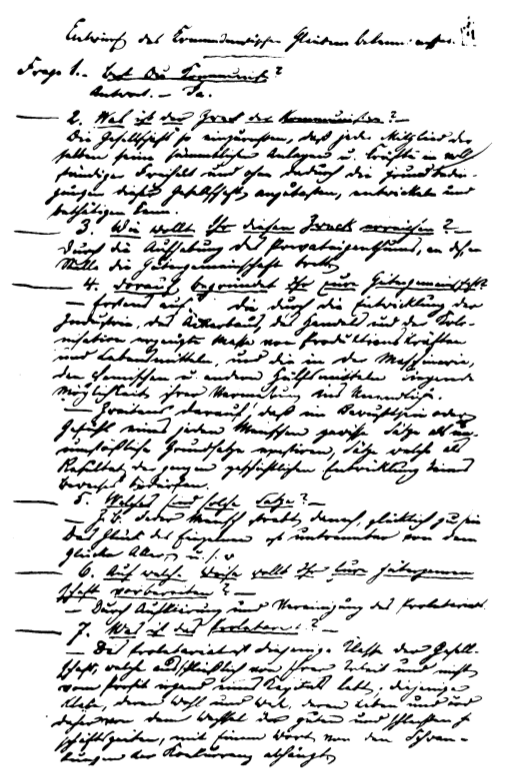 Entwurf des Kommunistischen Glaubensbekenntnisses.
Frage 1. – Bist Du Kommunist?
Antwort. – Ja.
2. Was ist der Zweck der Kommunisten? –
Die Gesellschaft so einzurichten, daß jedes Mitglied der
selben seine sämmtlichen Anlagen u. Kräfte in voll
ständiger Freiheit und ohne dadurch die Grundbedin-
gungen dieser Gesellschaft anzutasten, entwickeln und
bethätigen kann.
3. Wie wollt Ihr diesen Zweck erreichen? –
Durch die Aufhebung des Privateigenthums, an dessen
Stelle die Gütergemeinschaft tritt.
4. Worauf begründet Ihr Eure Gütergemeinschaft?
– Erstens auf die durch die Entwicklung der
Industrie, des Ackerbaus, des Handels und der Kolo-
nisation erzeugte Masse von Produktionskräften
und Lebensmitteln, und die in der Maschinerie,
den chemischen u. andern Hülfsmitteln liegende
Möglichkeit ihrer Vermehrung ins Unendliche.
– Zweitens darauf, daß im Bewußtsein oder
Gefühl eines jeden Menschen gewisse Sätze als un-
umstößliche Grundsätze existiren, Sätze welche als
Resultat der ganzen geschichtlichen Entwicklung keines
Beweises bedürfen.
5. Welches sind solche Sätze? –
– Z. B. Jeder Mensch strebt danach, glücklich zu sein
Das Glück des Einzelnen ist untrennbar von dem
Glücke Aller, u. s. w
6. Auf welche Weise wollt Ihr Eure Gütergemein
schaft vorbereiten? –
– Durch Aufklärung und Vereinigung des Proletariats.
7. Was ist das Proletariat? –
– Das Proletariat ist diejenige Klasse der Gesell-
schaft, welche ausschließlich von ihrer Arbeit und nicht
vom Profit irgend eines Kapitals lebt, diejenige
Klasse, deren Wohl und Weh, deren Leben und Tod
daher von dem Wechsel der guten und schlechten Ge
schäftszeiten, mit Einem Wort von den Schwan-
kungen der Konkurrenz abhängt